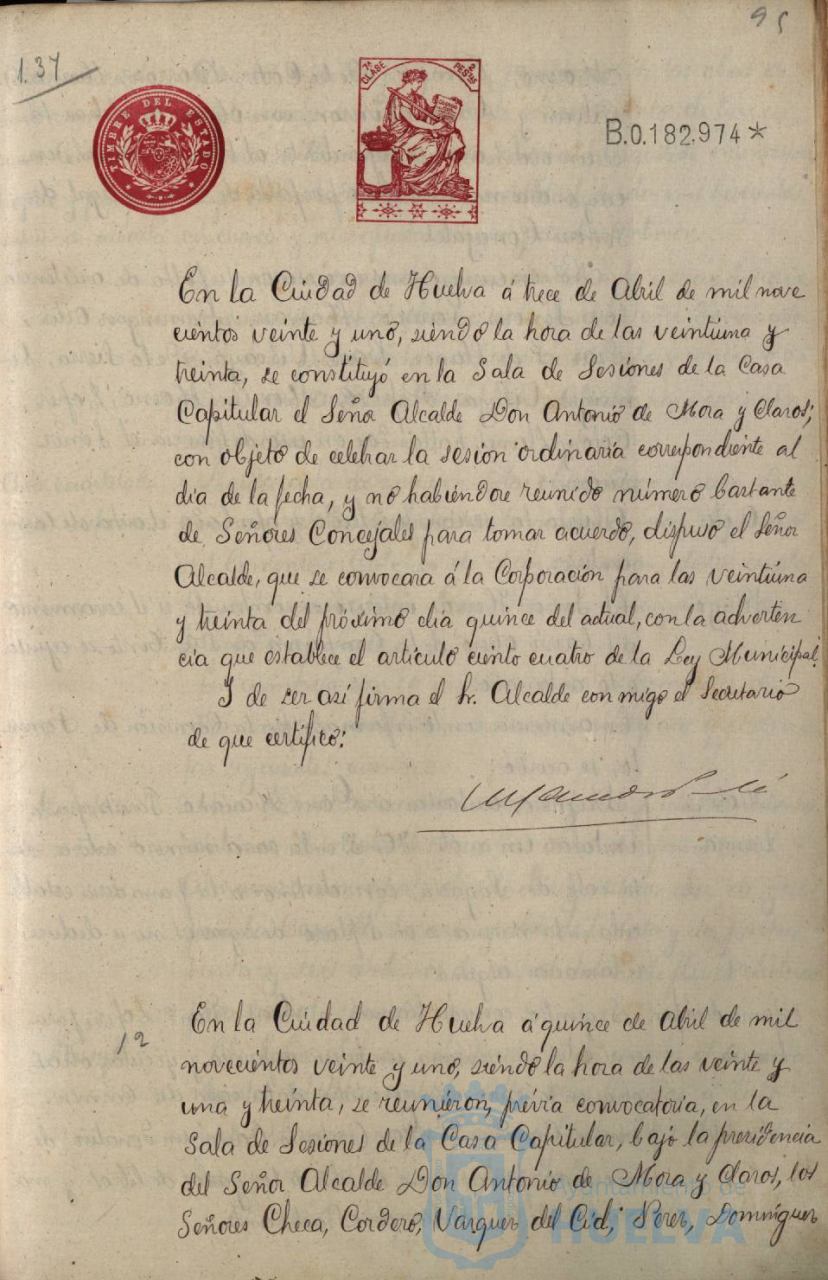 95
1.37
TIMBRE DEL ESTADO
7ª CLASE 2 PESETAS
B.0.182.974*
En la Ciudad de Huelva á trece de Abril de mil nove
cientos veinte y uno, siendo la hora de las veintiuna y
treinta, se constituyó en la Sala de Sesiones de la Casa
Capitular el Señor Alcalde Don Antonio de Mora y Claros;
con objeto de celebrar la sesion ordinaria correspondiente al
dia de la fecha, y no habiéndose reunido número bastante
de Señores Concejales para tomar acuerdo, dispuso el Señor
Alcalde, que se convocara á la Corporación para las veintiuna
y treinta del próximo dia quince del actual, con la adverten
cia que establece el artículo ciento cuatro de la Ley Municipal.
Y de ser así firma el Sr. Alcalde conmigo el Secretario
de que certifico:
12
En la Ciudad de Huelva á quince de Abril de mil
novecientos veinte y uno, siendo la hora de las veinte y
una y treinta, se reunieron, prévia convocatoria, en la
Sala de Sesiones de la Casa Capitular, bajo la presidencia
del Señor Alcalde Don Antonio de Mora y Claros, los
Señores Checa, Cordero, Vazquez del Cid, Perez, Domínguez
Ayuntamiento de
HUELVA